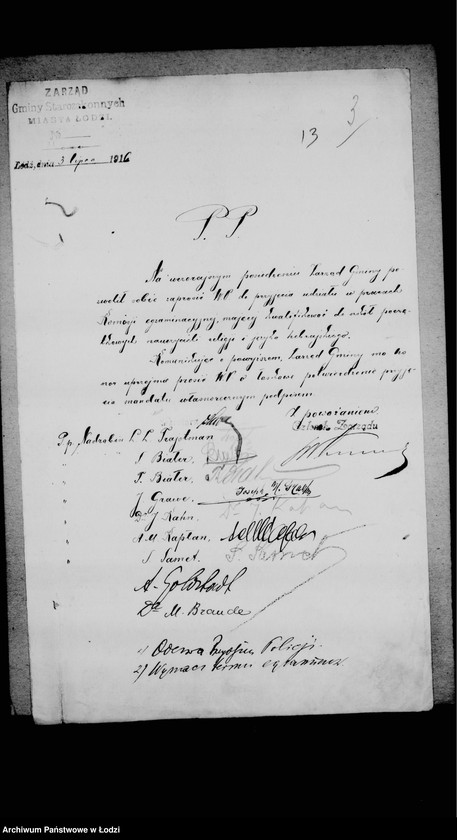 ZARZĄD
Gminy Starozakonnych
MIASTA ŁODZI.
Łódź, dnia 3 lipca 1916
13
3
P. P.
Na wczorajszym posiedzeniu Zarząd Gminy po-
wołał sobie zaprosić WP. do przyjęcia udziału w pracach
Komisyi egzaminacyjnej, mającej kwalifikować do szkół począ-
tkowych nauczycieli religii i języka hebrajskiego.
Komunikując o powyższem, Zarząd Gminy ma ho-
nor uprzejmie prosić WP. o łaskawe potwierdzenie przyję-
cia mandatu własnoręcznym podpisem
Z poważaniem
Członek Zarządu
Pp. Nadrabin L. L. Trajstman
" S. Bialer
" T. Bialer
" J. Grawe
" Dr J. Kahn
" A. M. Kapłan
" S. Samet
A. Goldstadt
Dr M. Braude
1) Odezwa Policji
2)
Archiwum Państwowe w Łodzi